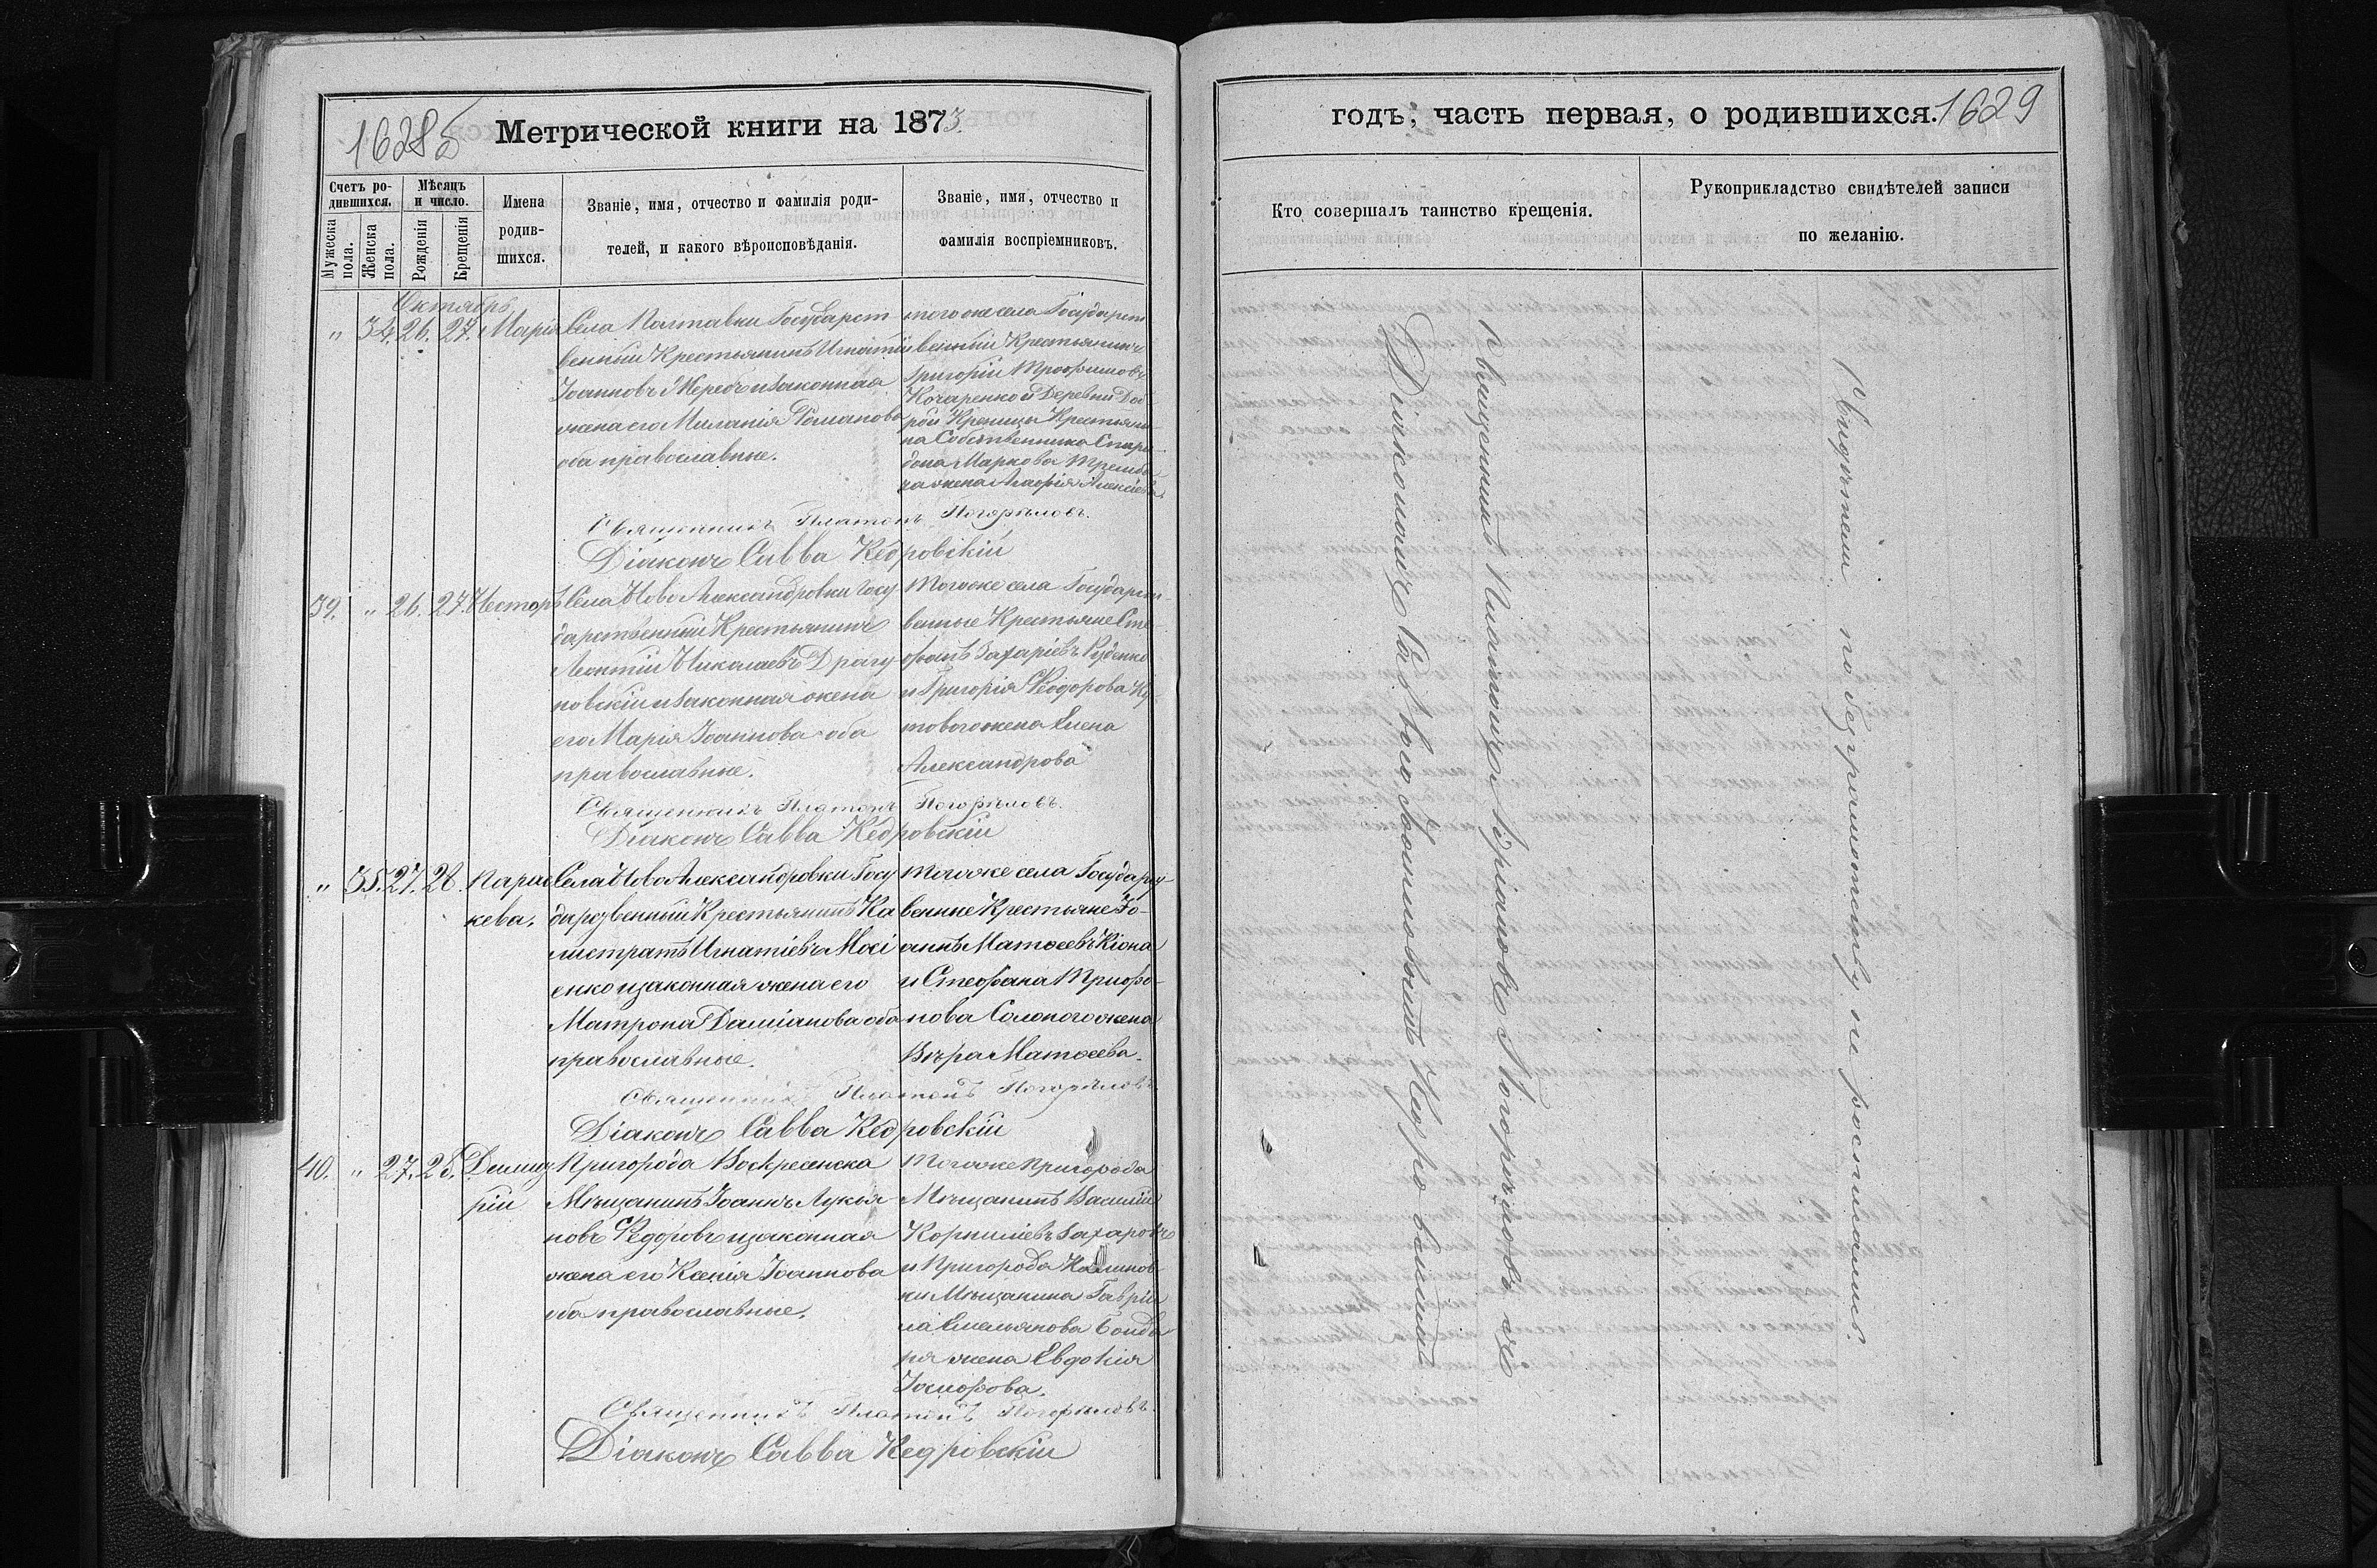 1628б
Метрической книги на 1873.
Счетъ ро-
дившихся.
Мужеска
пола.
Женска
пола.
Мѣсяцъ
и число.
Рожденія
Крещенія
Имена
родив-
шихся.
Званіе, имя, отчество и фамилія роди-
телей, и какого вѣроисповѣданія.
Званіе, имя, отчество и
фамилія воспріемниковъ.
Октябрь
" 34. 26. 27. Марія
Села Полтавки Государст
венный Крестьянинъ Игнатій
Іоанновъ и законная
жена его Миланія Романова
оба православные.
того же села Государст
венный Крестьянинъ
Григорій Трофимовъ
Кочаренко и Деревни Доб
рой Креницы Крестьяни
на Собственника Спири
дона Маркова
жена Агафія Алексіева
Священникъ Платонъ Погорѣловъ.
Діаконъ Савва Кедровскій
39. " 26. 27. Несторъ
Села Ново Александровки Госу
дарственный Крестьянинъ
Леонтій Николаевъ Драгу
новскій и законная жена
его Марія Іоаннова оба
православные.
Того же села Государст
венные Крестьяне Сте
фанъ Захаріевъ Руденко
и Григорія Ѳеодорова Ку
товаго жена Елена
Александрова
Священникъ Платонъ Погорѣловъ.
Діаконъ Савва Кедровскій
" 35. 27. 28. Парас
кева.
Села Ново Александровки Госу
дарственный Крестьянинъ Ка
листратъ Игнатіевъ Мосі
енко и законная жена его
Матрона Даміанова оба
православные.
Того же села Государст
венные Крестьяне Іо-
аннъ Матѳеевъ Кіона
и Стефана Трифо-
нова Солопого жена
Вѣра Матѳеева.
Священникъ Платонъ Погорѣловъ
Діаконъ Савва Кедровскій
40. " 27. 28. Димит
рій
Пригорода Воскресенска
Мѣщанинъ Іоаннъ Лукья
новъ Ѳедоровъ и законная
жена его Ксенія Іоаннова
оба православные.
Того же Пригорода
Мѣщанинъ Василій
Корниліевъ Захаровъ
и Пригорода Калинов
ки Мѣщанина Гаврій
ла Емельянова Бонда
ря жена Евдокія
Іосифова.
Священникъ Платонъ Погорѣловъ.
Діаконъ Савва Кедровскій
годъ, часть первая, о родившихся. 1629
Кто совершалъ таинство крещенія.
Рукоприкладство свидѣтелей записи
по желанію.
Священникъ Платонъ Погорѣловъ съ
Діакономъ Саввою Кедровскимъ
Свидѣтели по безграмотству не росписались.